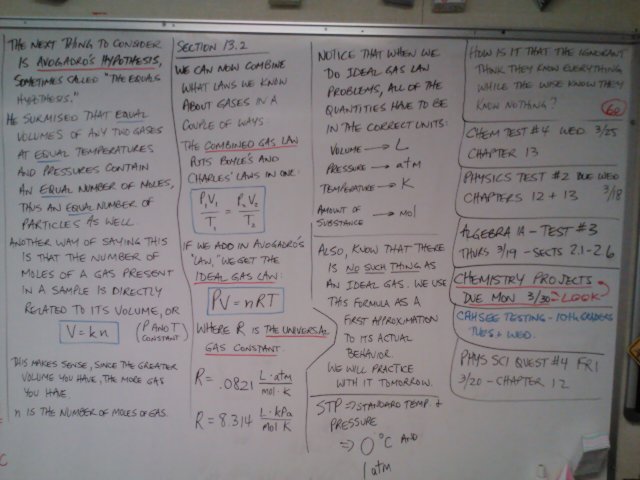 THE NEXT THING TO CONSIDER
IS AVOGADRO'S HYPOTHESIS,
SOMETIMES CALLED "THE EQUALS
HYPOTHESIS."
HE SURMISED THAT EQUAL
VOLUMES OF ANY TWO GASES
AT EQUAL TEMPERATURES
AND PRESSURES CONTAIN
AN EQUAL NUMBER OF MOLES,
THUS AN EQUAL NUMBER OF
PARTICLES AS WELL.
ANOTHER WAY OF SAYING THIS
IS THAT THE NUMBER OF
MOLES OF A GAS PRESENT
IN A SAMPLE IS DIRECTLY
RELATED TO ITS VOLUME, OR
V = kn (P AND T CONSTANT)
THIS MAKES SENSE, SINCE THE GREATER
VOLUME YOU HAVE, THE MORE GAS
YOU HAVE.
n IS THE NUMBER OF MOLES OF GAS.
SECTION 13.2
WE CAN NOW COMBINE
WHAT LAWS WE KNOW
ABOUT GASES IN A
COUPLE OF WAYS:
THE COMBINED GAS LAW
PUTS BOYLE'S AND
CHARLES' LAWS IN ONE:
P₁V₁/T₁ = P₂V₂/T₂
IF WE ADD IN AVOGADRO'S
"LAW," WE GET THE
IDEAL GAS LAW:
PV = nRT
WHERE R IS THE UNIVERSAL
GAS CONSTANT.
R = .0821 L·atm/mol·K
R = 8.314 L·kPa/mol·K
NOTICE THAT WHEN WE
DO IDEAL GAS LAW
PROBLEMS, ALL OF THE
QUANTITIES HAVE TO BE
IN THE CORRECT UNITS:
VOLUME → L
PRESSURE → atm
TEMPERATURE → K
AMOUNT OF
SUBSTANCE → mol
ALSO, KNOW THAT THERE
IS NO SUCH THING AS
AN IDEAL GAS. WE USE
THIS FORMULA AS A
FIRST APPROXIMATION
TO ITS ACTUAL
BEHAVIOR.
WE WILL PRACTICE
WITH IT TOMORROW.
STP ⇒ STANDARD TEMP. &
PRESSURE
⇒ 0°C AND
1 atm
HOW IS IT THAT THE IGNORANT
THINK THEY KNOW EVERYTHING
WHILE THE WISE KNOW THEY
KNOW NOTHING?
CHEM TEST #4 WED 3/25
CHAPTER 13
PHYSICS TEST #2 DUE WED
CHAPTERS 12 + 13 3/18
ALGEBRA 1A - TEST #3
THURS 3/19 - SECTS 2.1-2.6
CHEMISTRY PROJECTS
DUE MON 3/30 LOOK
CAHSEE TESTING - 10TH GRADERS
TUES + WED
PHYS SCI QUEST #4 FRI
3/20 - CHAPTER 12